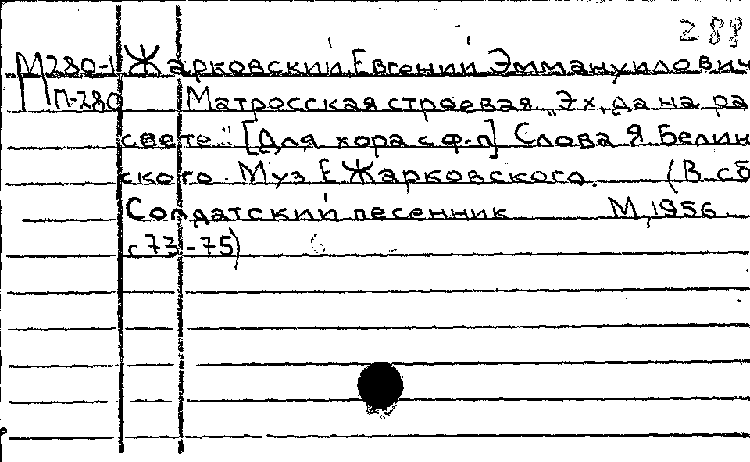 288
М280-1 Жарковский, Евгений Эммануилович
МП-280 Матросская строевая „Эх, да на рас
свете" [Для хора с ф-п] Слова Я. Белин
ского. Муз Е Жарковского. (В сб
Солдатский песенник М, 1956
с 73-75)